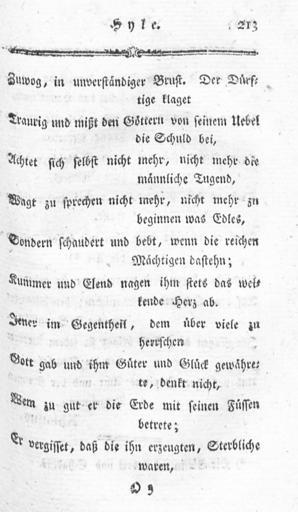 Hyle. 213
Zuwog, in unverständiger Brust. Der Dürf-
tige klaget
Traurig und mißt den Göttern von seinem Uebel
die Schuld bei,
Achtet sich selbst nicht mehr, nicht mehr die
männliche Tugend,
Wagt zu sprechen nicht mehr, nicht mehr zu
beginnen was Edles,
Sondern schaudert und bebt, wenn die reichen
Mächtigen dastehn;
Kummer und Elend nagen ihm stets das wei-
kende Herz ab.
Jener im Gegentheil, dem über viele zu
herrschen
Gott gab und ihm Güter und Glück gewähre-
te, denkt nicht,
Wem zu gut er die Erde mit seinen Füssen
betrete;
Er vergisset, daß die ihn erzeugten, Sterbliche
waren,
O 3